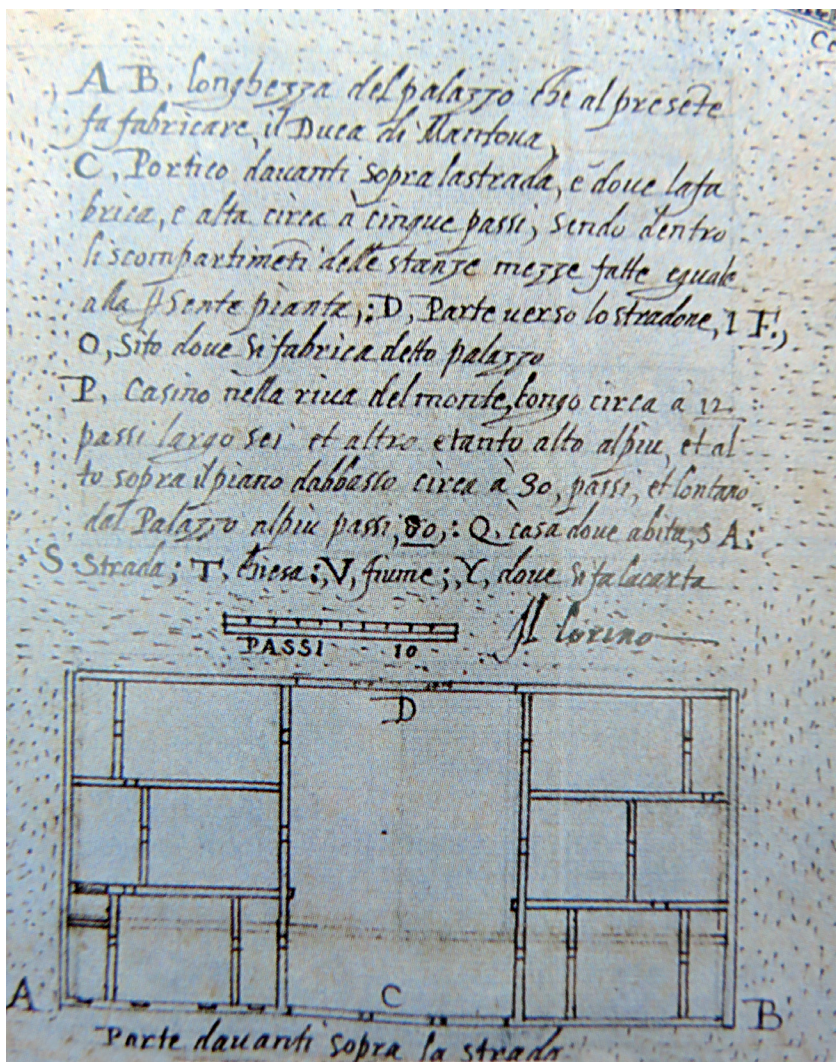 Co
A B, longhezza del palazzo che al presẽte
fa fabricare, il Duca di Mantova,
C, Portico davanti sopra lastrada, e dove lafa
brica, e alta circa à cinque passi, sendo dentro
li scompartimẽti delle stanze mezze fatte eguale
alla psente pianta,: D, Parte verso lo stradone, I F.,
O, Sito dove si fabrica detto palazzo
P, Casino nella riva del monte, longo circa à 12
passi largo sei et altro etanto alto alpiu, et al
to sopra il piano dabbasso circa à 30, passi, et lontano
dal Palazzo alpiu passi, 80,: Q, casa dove abita, S A:
S. Strada; T, Chiesa:, V, fiume;, Y, dove si fa lacarta
PASSI 10
Il lorino
D
C
A B
Parte davanti sopra la strada